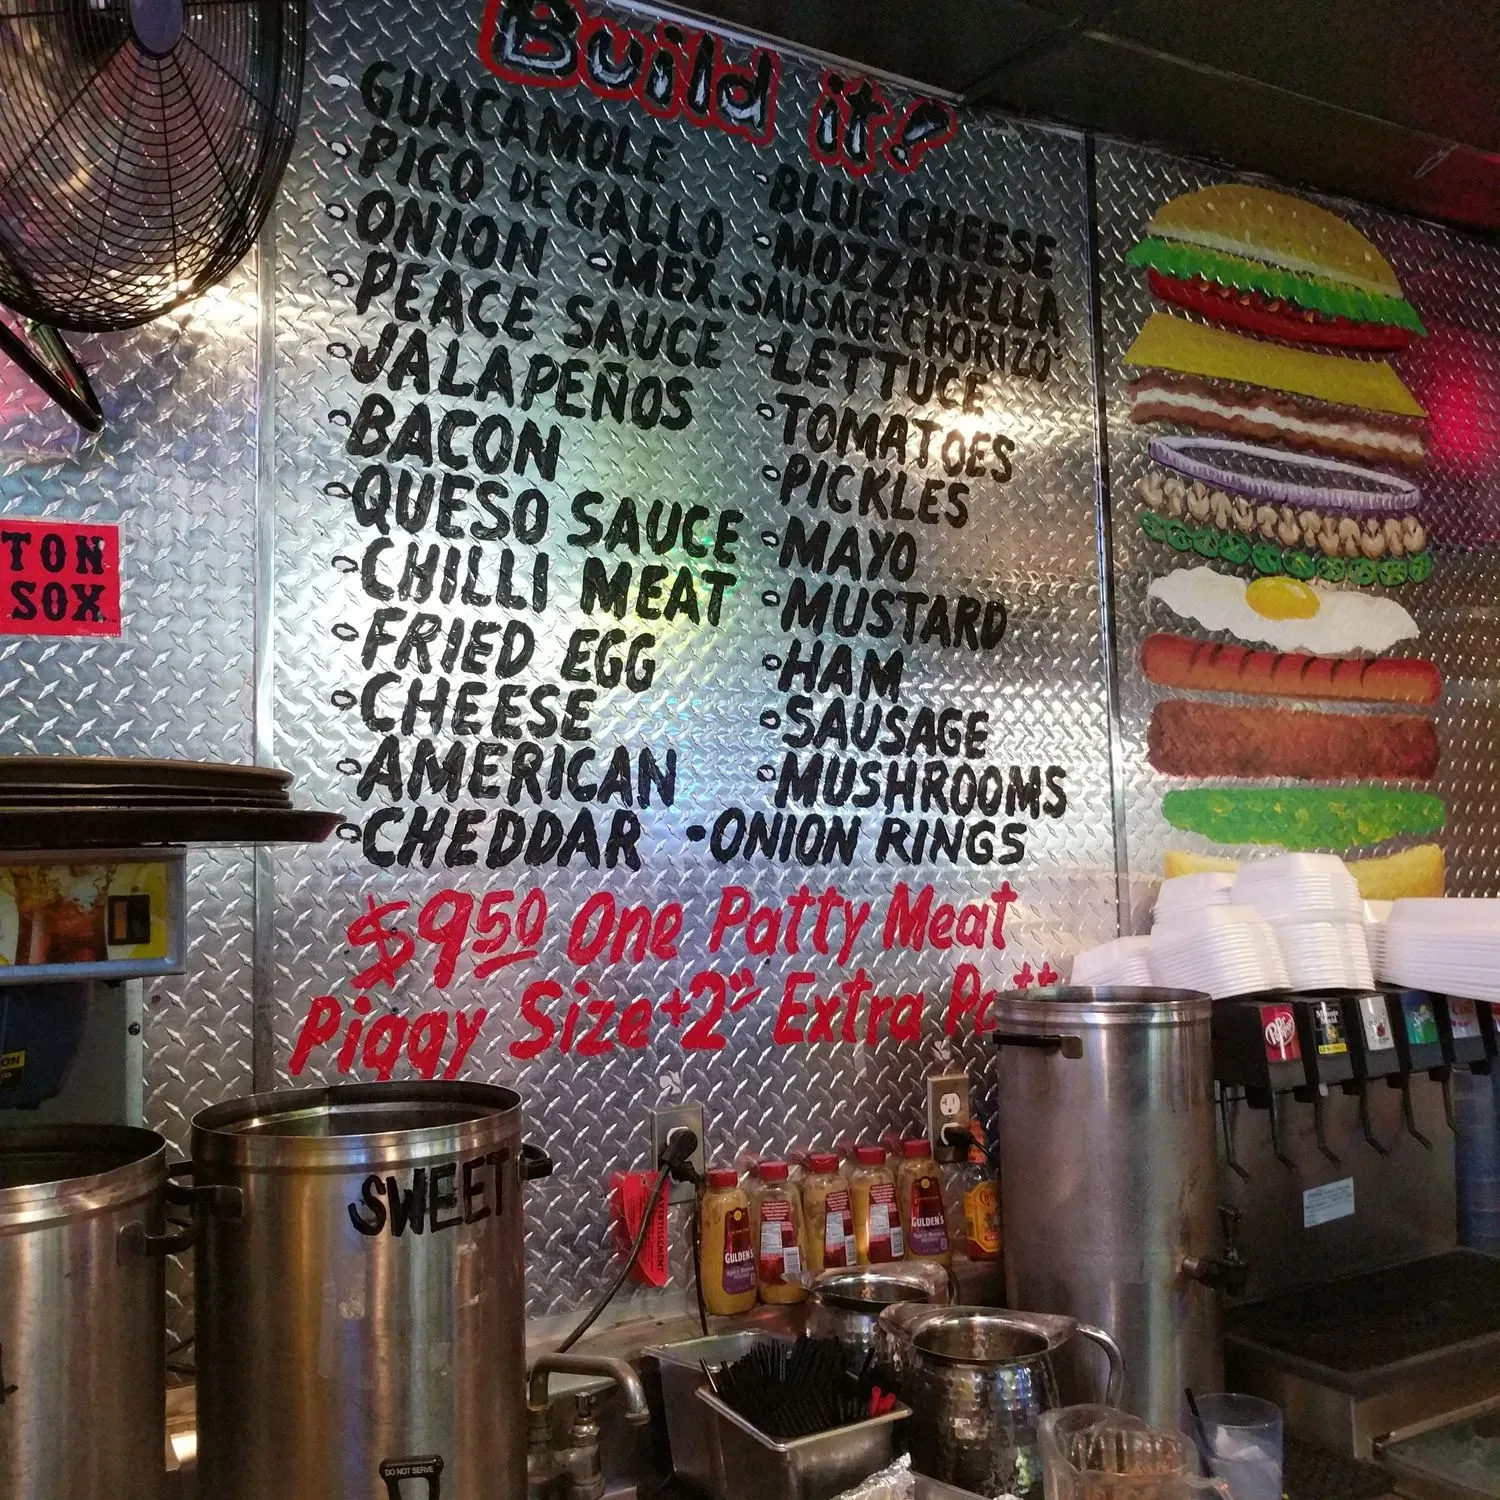 Build it!
◦GUACAMOLE
◦PICO DE GALLO
◦ONION
◦MEX. SAUSAGE CHORIZO
◦PEACE SAUCE
◦JALAPEÑOS
◦BACON
◦QUESO SAUCE
◦CHILLI MEAT
◦FRIED EGG
◦CHEESE
◦AMERICAN
◦CHEDDAR
◦BLUE CHEESE
◦MOZZARELLA
◦LETTUCE
◦TOMATOES
◦PICKLES
◦MAYO
◦MUSTARD
◦HAM
◦SAUSAGE
◦MUSHROOMS
•ONION RINGS
$9.50 One Patty Meat
Piggy Size+2⁰⁰ Extra
TON
SOX
SWEET
DO NOT SERVE
GULDEN'S
GULDEN'S
Dr Pepper